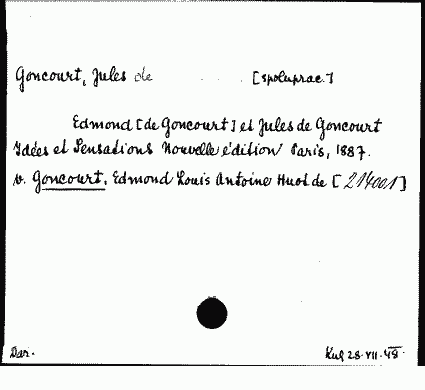 Goncourt, Jules de [spoluprac.]
Edmond [de Goncourt] et Jules de Goncourt
Idées et Sensations Nouvelle édition Paris, 1887.
v. Goncourt, Edmond Louis Antoine Huot de [214001]
Dar.
Kug 28.VII.48.